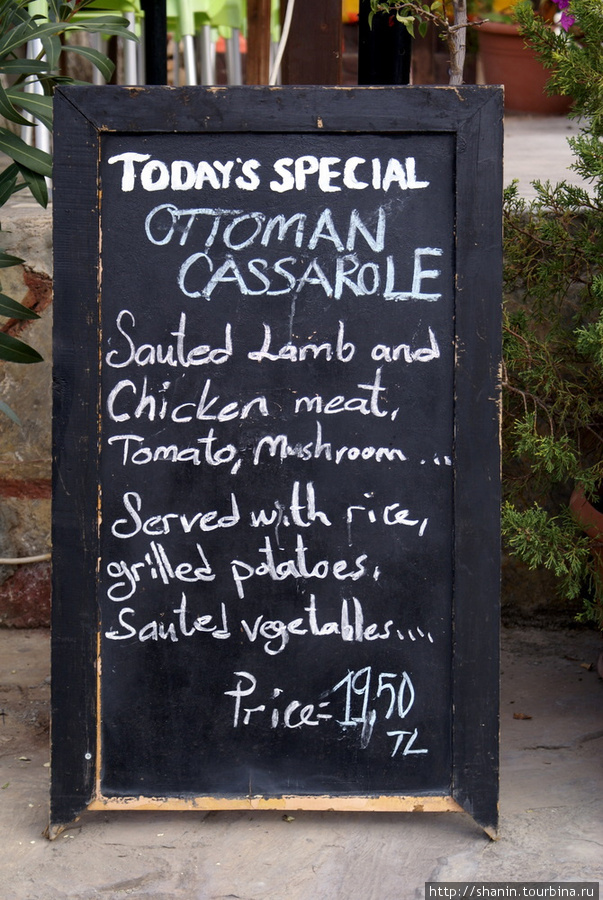 TODAY'S SPECIAL
OTTOMAN
CASSAROLE
Sauted Lamb and
Chicken meat,
Tomato, Mushroom ...
Served with rice,
grilled potatoes,
Sauted vegetables....
Price=19,50
TL
http://shanin.tourbina.ru